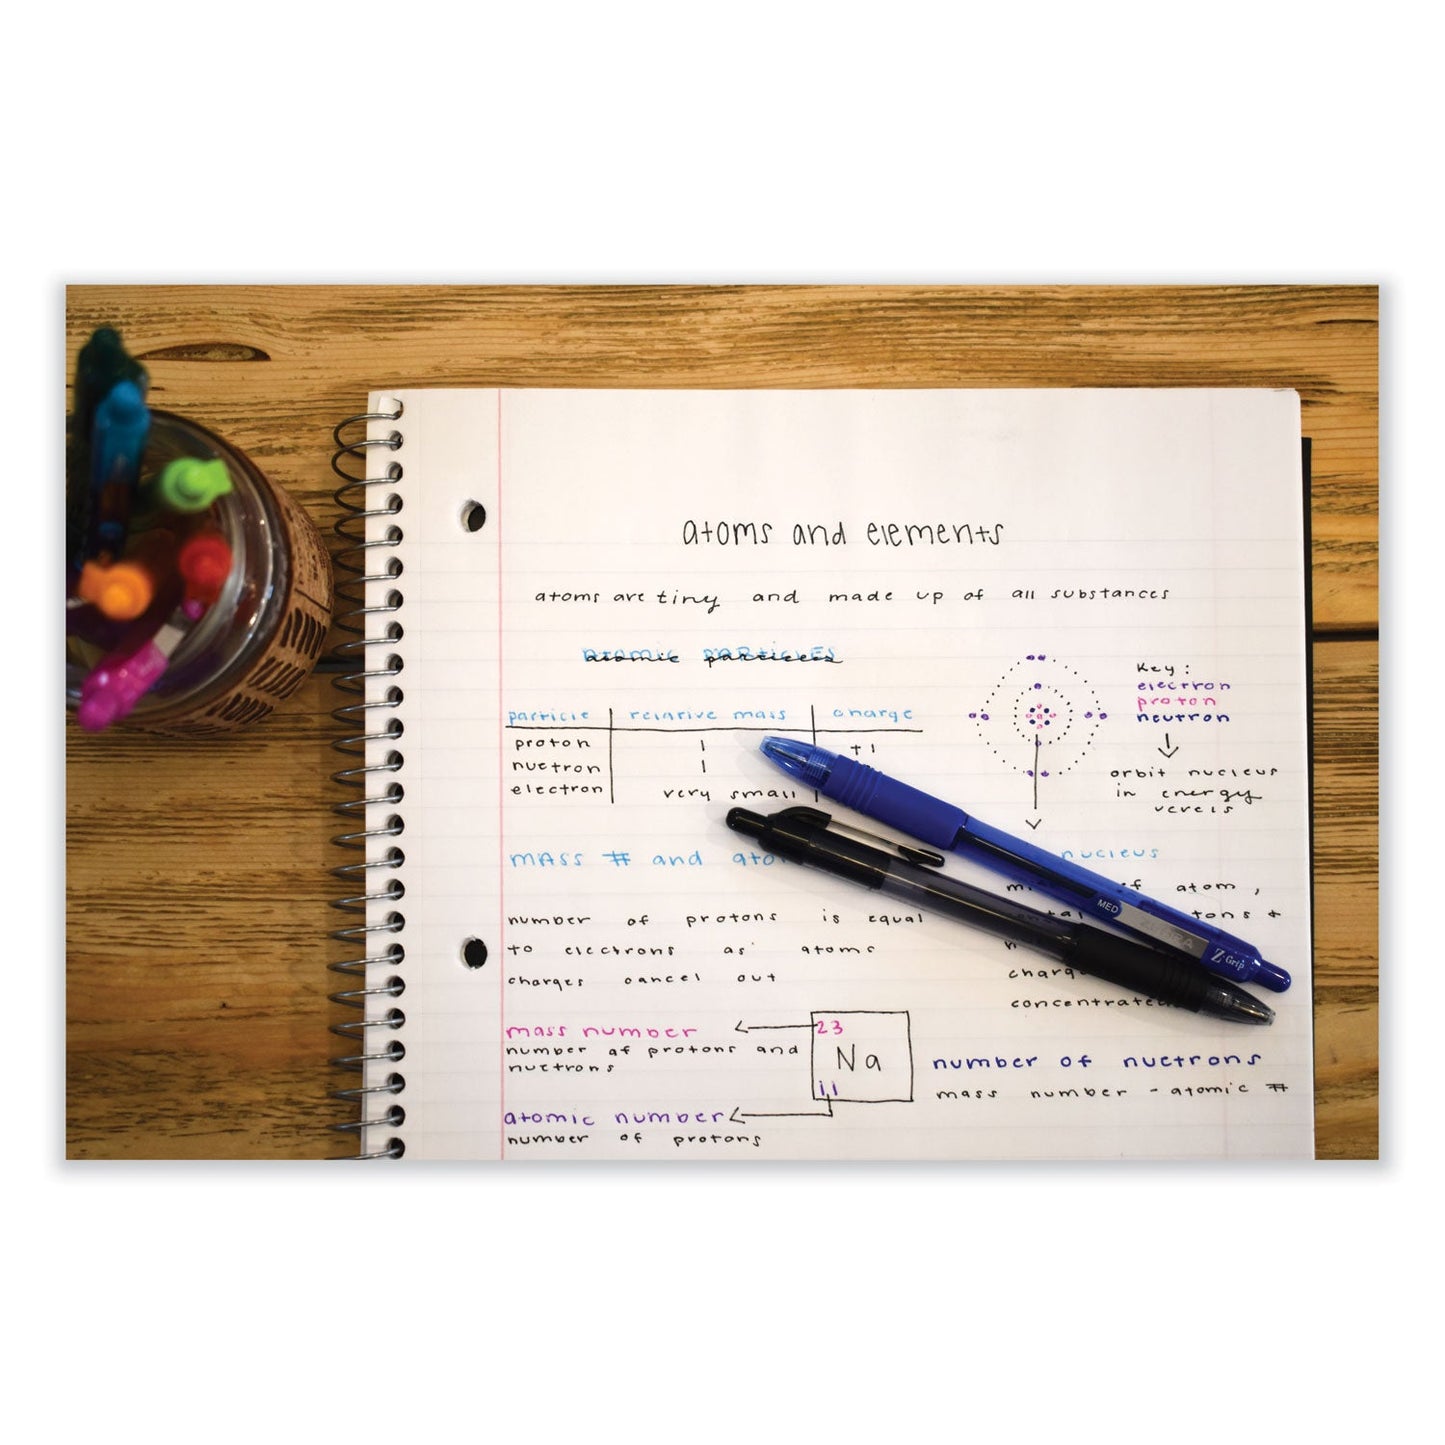 atoms and elements
atoms are tiny and made up of all substances
atomic particles
particle relative mass charge
proton 1 +1
nuetron 1
electron very small
Key:
electron
proton
neutron
orbit nucleus
in energy
mass # and
number of protons is equal
to electrons as atoms
charges cancel out
nucleus
of atom,
mass number
number of protons and
nuetrons
23
Na
11
atomic number
number of protons
number of nuetrons
mass number - atomic #
MED
ZEBRA
Z-Grip